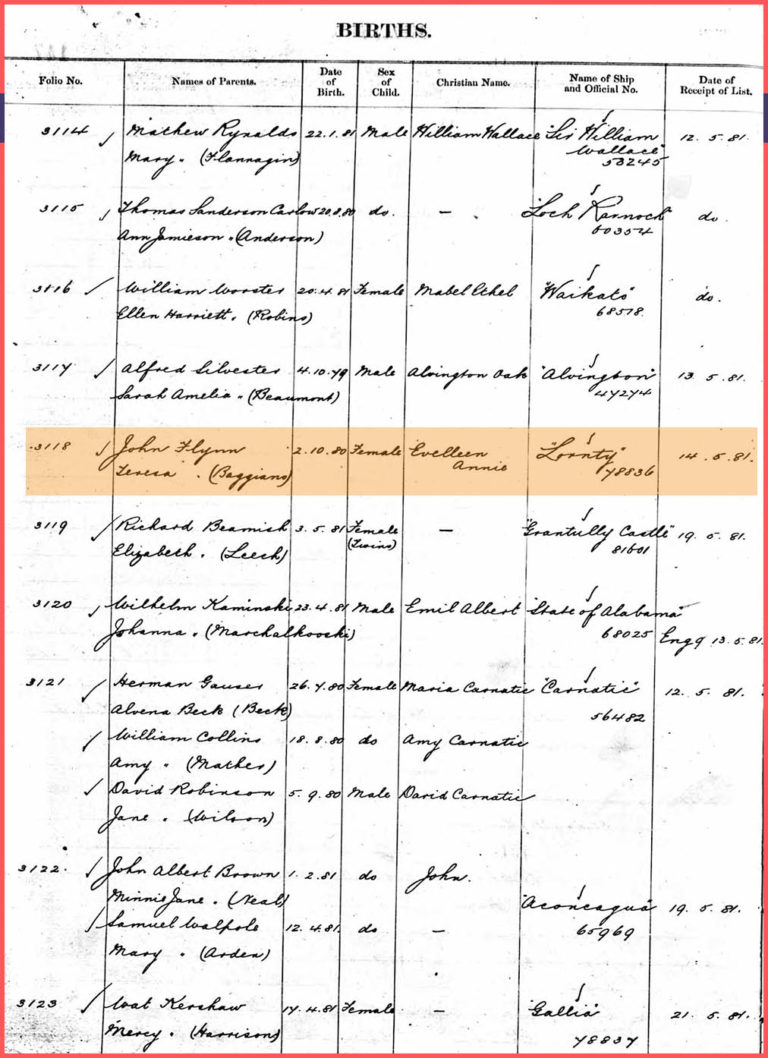 BIRTHS.
Folio No. Names of Parents. Date of Birth. Sex of Child. Christian Name. Name of Ship and Official No. Date of Receipt of List.
3114 Mathew Rynalds 22.1.81 Male William Wallace "Sir William
Mary " (Flannagin) Wallace"
53245 12.5.81.
3115 Thomas Sanderson Carlow 20.9.80 do. — "Loch Rannoch" do
Ann Jamieson " (Anderson) 60354
3116 William Worster 20.4.81 Female Mabel Ethel "Waikato" do.
Ellen Harriett " (Robins) 68518
3117 Alfred Silvester 4.10.79 Male Alvington Oak "Alvington" 13.5.81.
Sarah Amelia " (Beaumont) 47274
3118 John Flynn 2.10.80 Female Evelleen "Loonty" 14.5.81.
Teresa " (Baggians) Annie 78836
3119 Richard Beamish 3.5.81 Female — "Grantully Castle" 19.5.81.
Elizabeth " (Leech) (Twins) 81601
3120 Wilhelm Kaminski 23.4.81 Male Emil Albert "State of Alabama"
Johanna " (Marchalkowski) 68025 Engq 13.5.81.
3121 Herman Gauser 26.7.80 Female Maria Carnatic "Carnatic" 12.5.81.
Alvena Beck (Beck) 56482
William Collins 18.8.80 do Amy Carnatic
Amy " (Mather)
David Robinson 5.9.80 Male David Carnatic
Jane " (Wilson)
3122. John Albert Brown 1.2.81 do John.
Minnie Jane " (Neal) "Aconcagua" 19.5.81.
Samuel Walpole 12.4.81. do — 65969
Mary " (Arden)
3123 Wat Kershaw 17.4.81 Female — "Gallia" 21.5.81.
Mercy " (Harrison) 78837